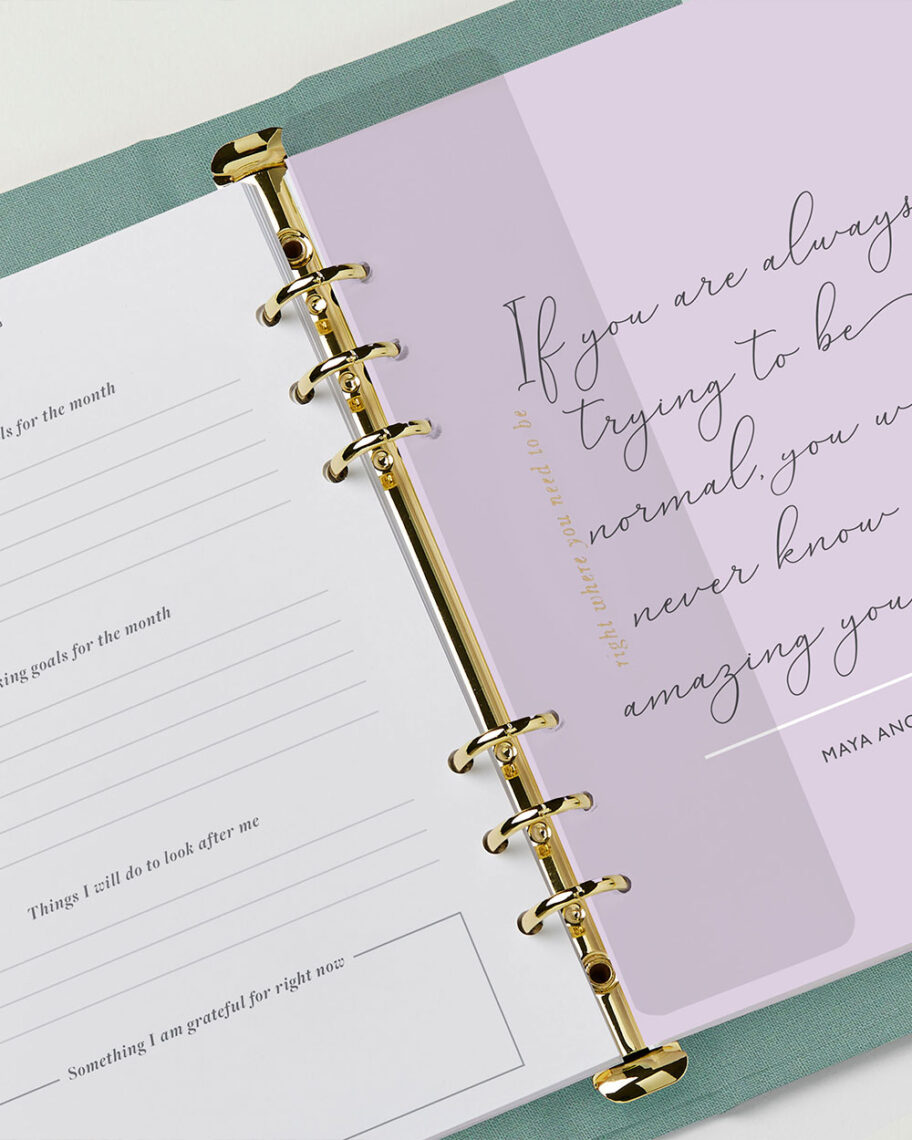 for the month
goals for the month
Things I will do to look after me
Something I am grateful for right now
right where you need to be
If you are always
trying to be
normal, you
never know
amazing you
MAYA